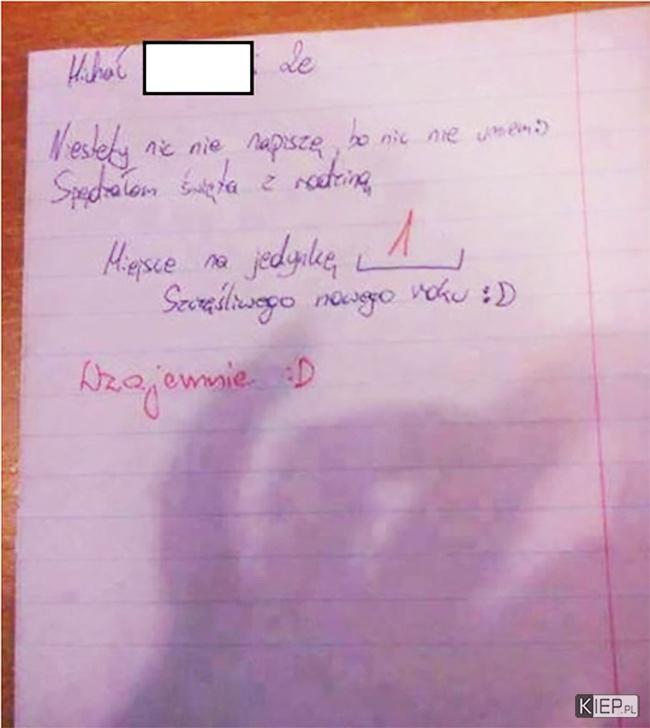 Michał i 2e
Niestety nic nie napiszę, bo nic nie umiem:)
Spędzałem święta z rodziną
Miejsce na jedynkę 1
Szczęśliwego nowego roku :D
Wzajemnie :D
KIEP.PL